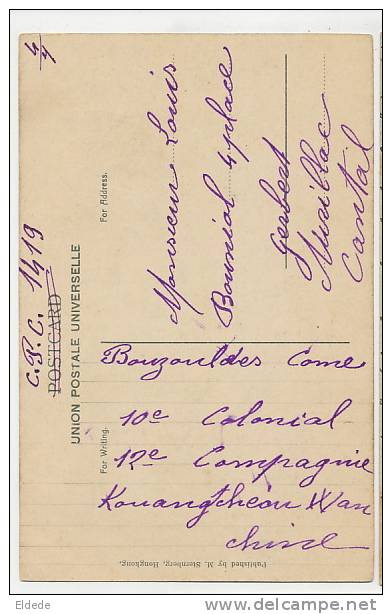 4/4
C.P.C. 1419
POSTCARD
UNION POSTALE UNIVERSELLE
For Address.
Monsieur Louis
Bounial 4 place
Gerbert
Murillac
Cantal
For Writing.
Bouzouldes Come
10e Colonial
12e Compagnie
Kouangtcheou Wan
chine
Published by M. Sternberg, Hongkong.
Eldede
http://eldede.delcampe.net